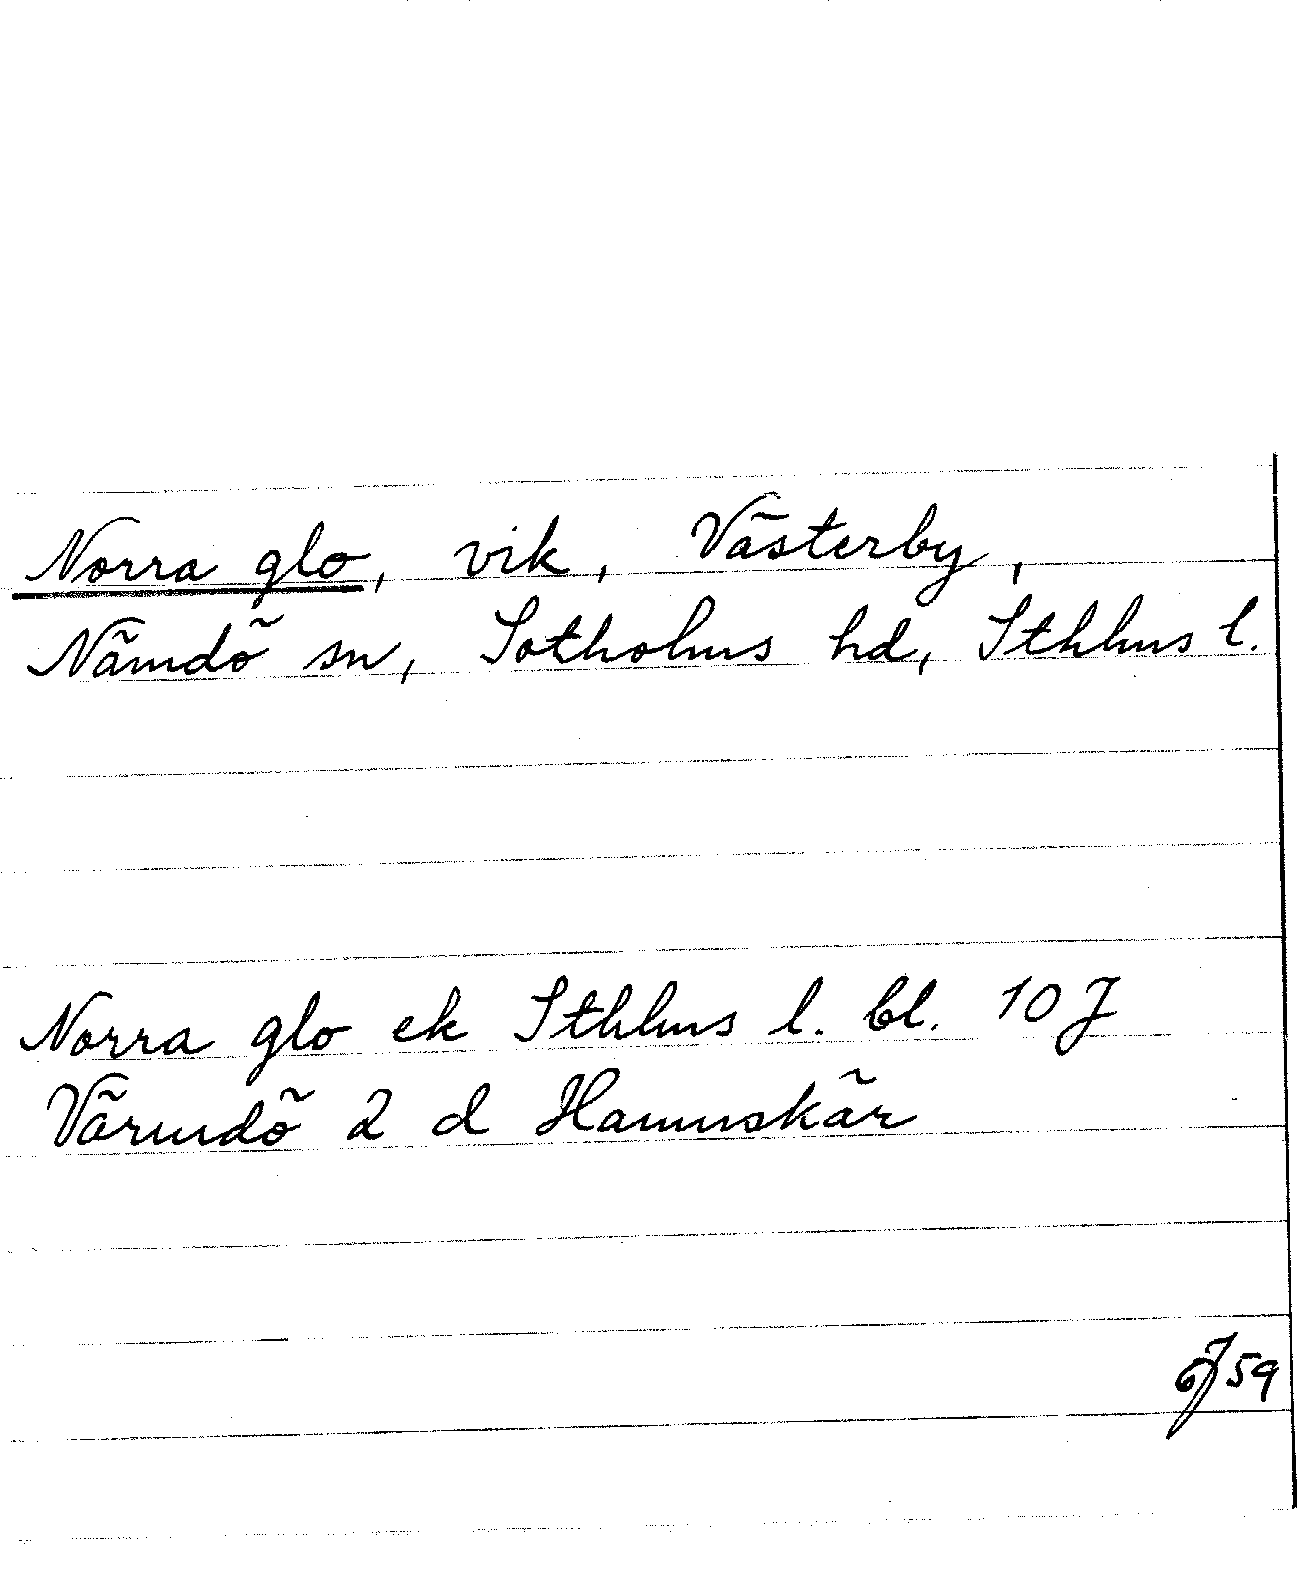 Norra glo, vik, Västerby,
Nämdö sn, Sotholms hd, Sthlms l.
Norra glo ek Sthlms l. bl. 10 J
Värmdö 2 d Hamnskär
59